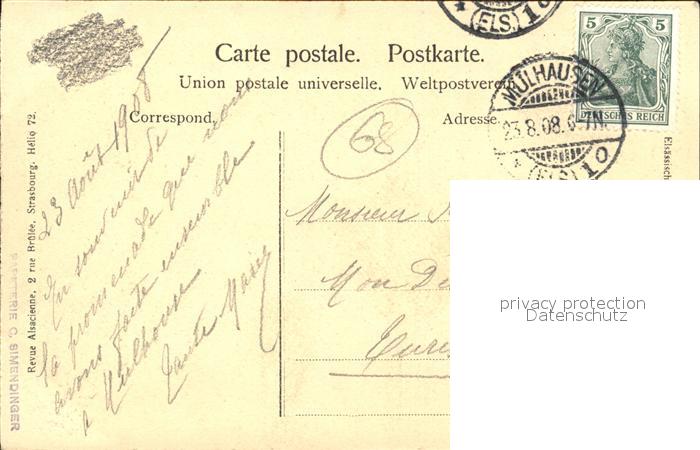 Carte postale. Postkarte.
Union postale universelle. Weltpostverein
Correspond.
Adresse.
5 5
DEUTSCHES REICH
(ELS.) 10
MÜLHAUSEN
23.8.08.6-7N.
* (ELS.) 10
68
23 Août 1908
En souvenir de
la promenade que nous
avons faite ensemble
à Mulhouse
Tante
Monsieur
Mon
Revue Alsacienne, 2 rue Brûlée, Strasbourg. Hélio 72.
PAPETERIE C. SIMENDINGER
Elsässisch
privacy protection
Datenschutz